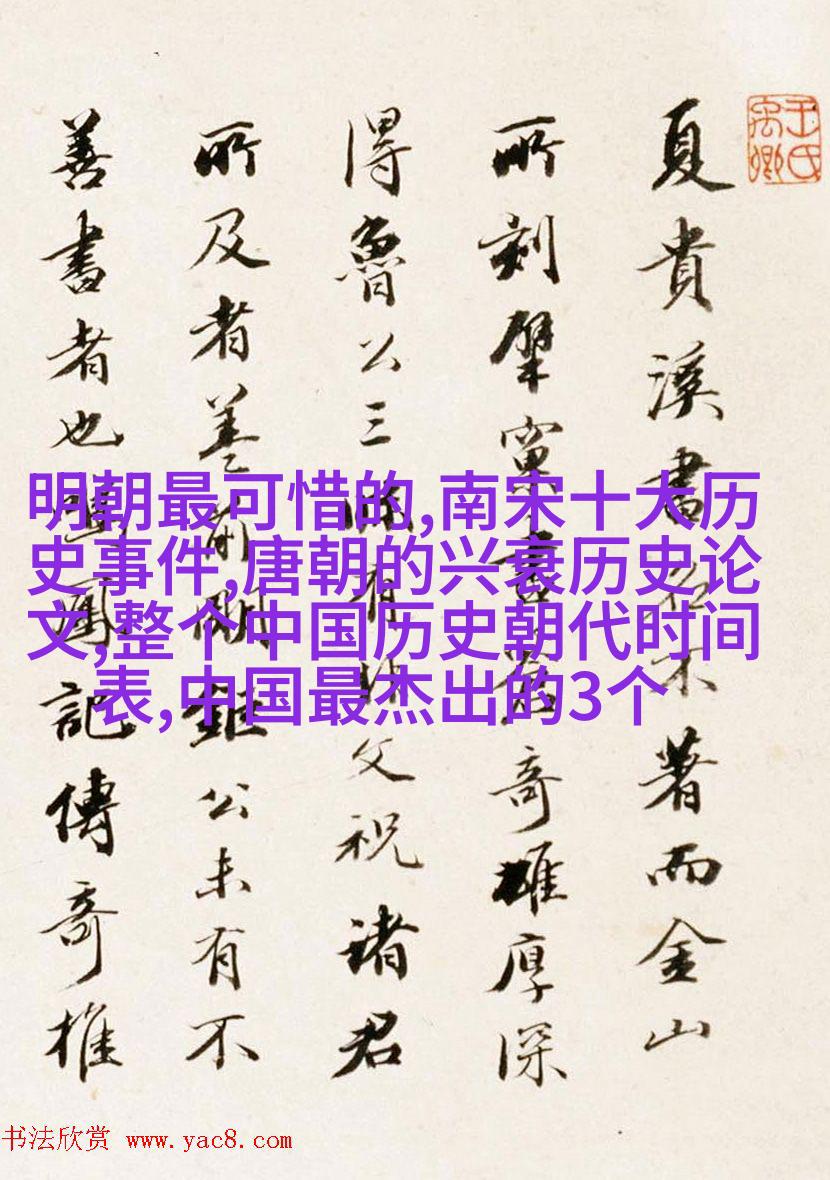 王氏禹卿
夏貴溪書名不著而金山
所刻擘窠書奇雄厚深
得魯公三昧有文祝諸君
所及者蓋前明鉅公未有不
善書者也鳴鳳記傳奇推
明朝最可惜的,南宋十大历
史事件,唐朝的兴衰历史论
文,整个中国历史朝代时间
表,中国最杰出的3个
书法欣赏 www.yac8.com